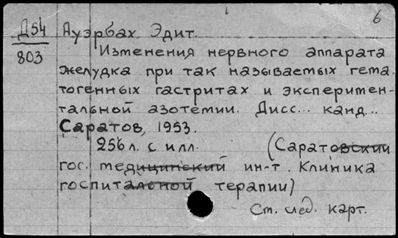 6
Д54 Ауэрбах Эдит
803 Изменения нервного аппарата
желудка при так называемых гема-
тогенных гастритах и эксперимен-
тальной азотемии. Дисс... канд...
Саратов, 1953.
256 л. с илл. (Саратовский
гос. медицинский ин-т. Клиника
госпитальной терапии)
См. след. карт.